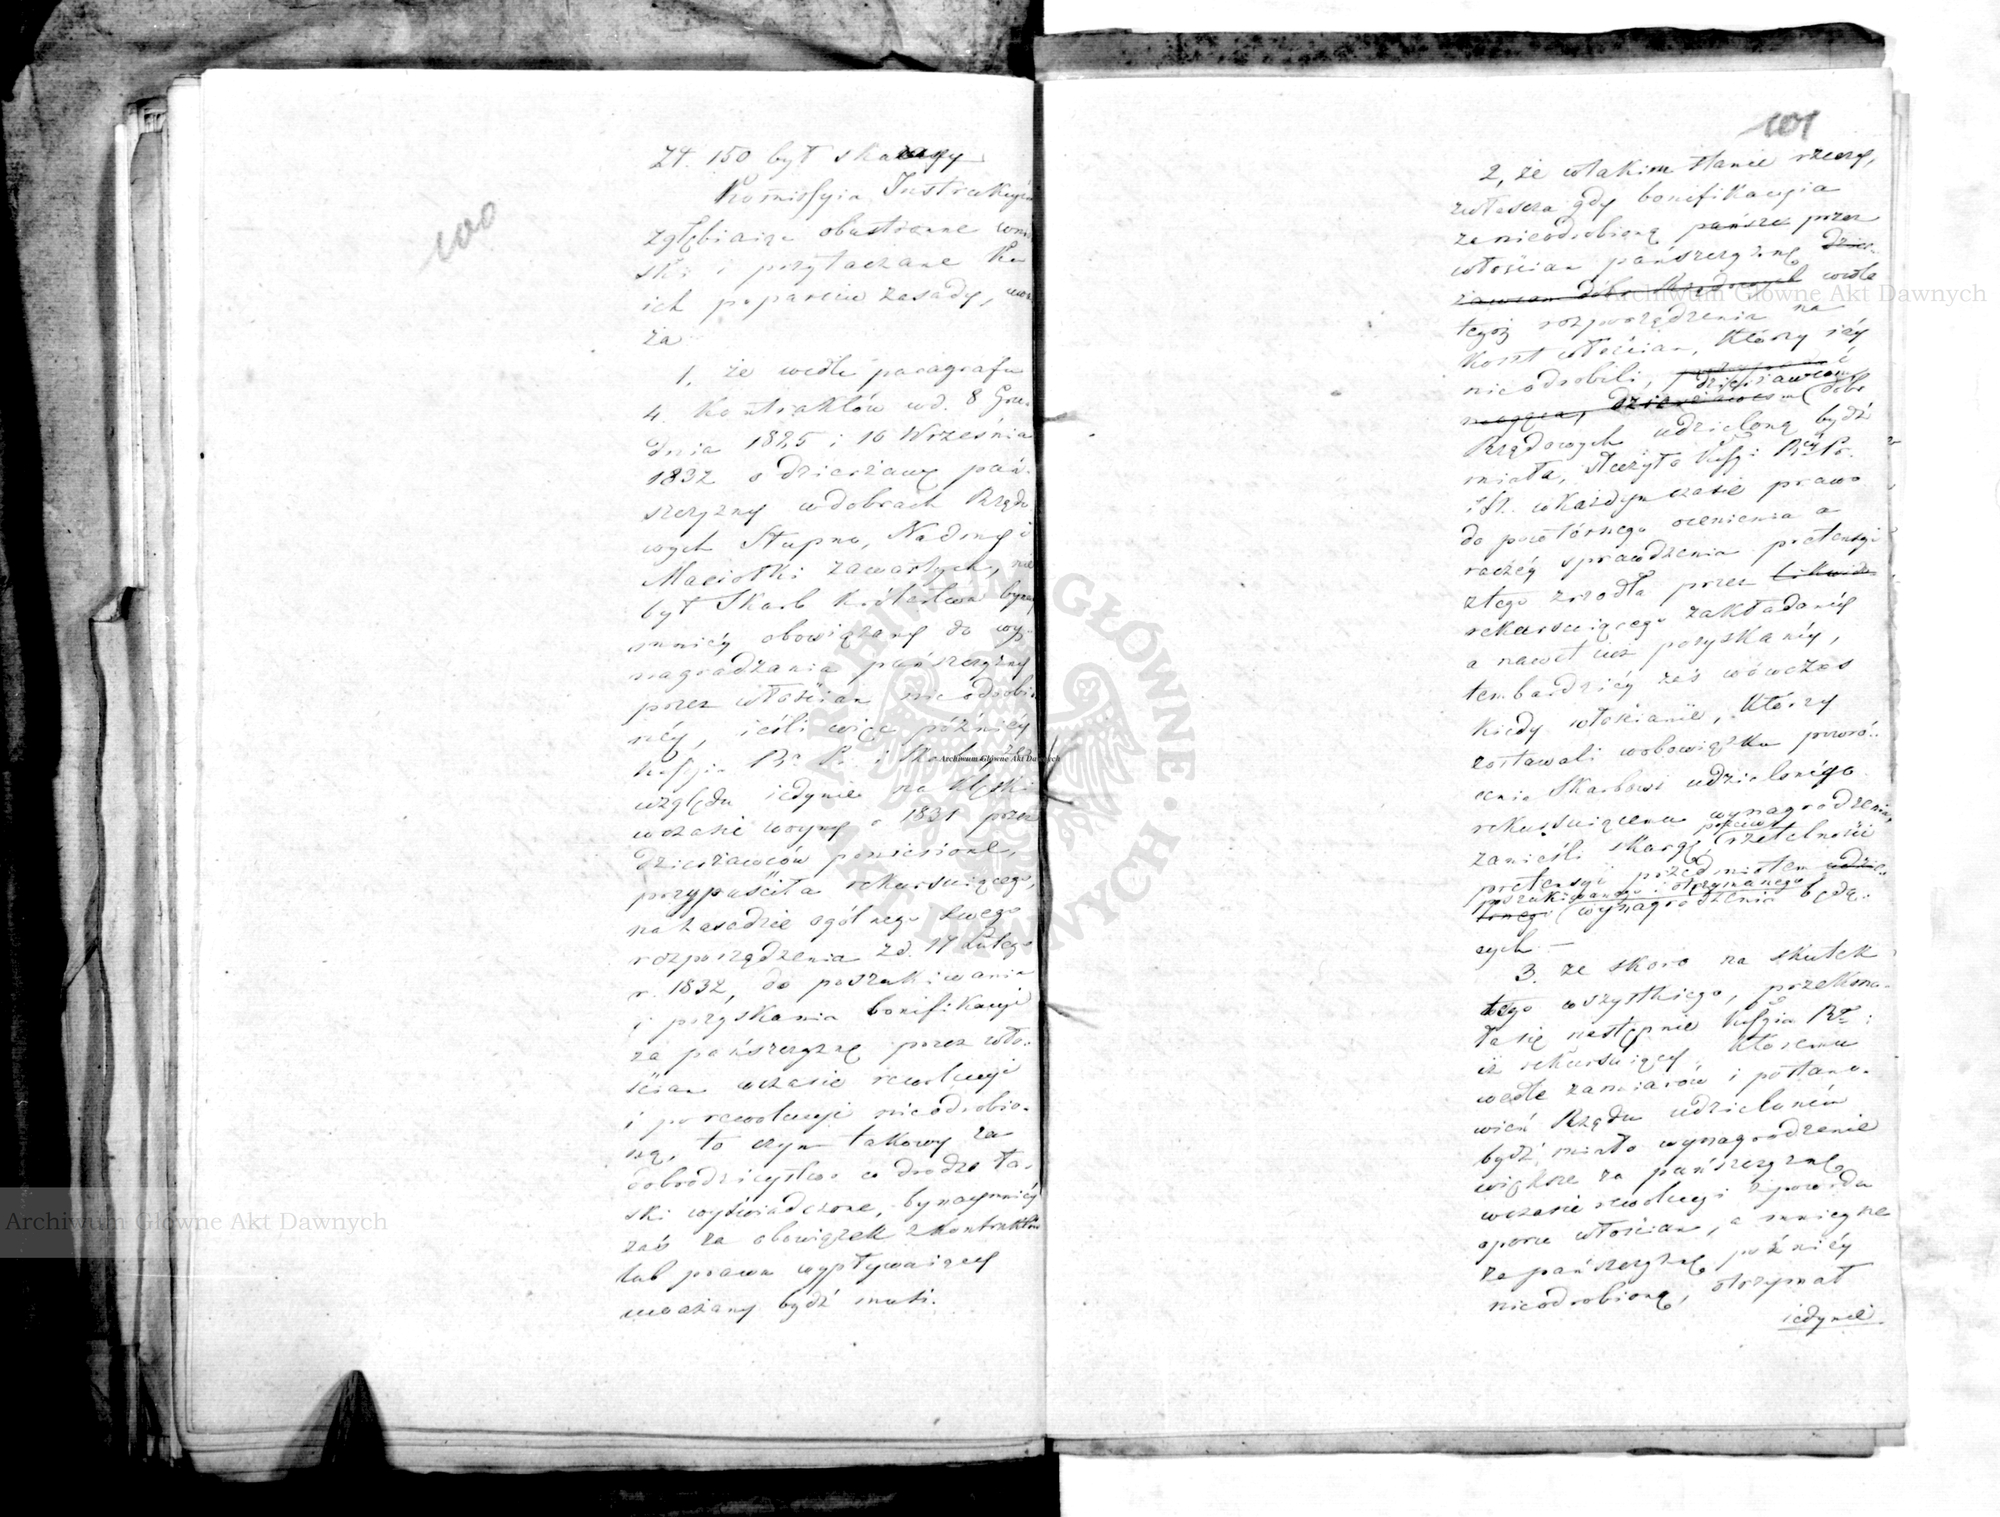 100
Zł. 150 był skazany
Kommissyia Instrukcyi
zgłębiaiąc obustronne wnio
ski i przytaczane Ku
ich poparciu zasady, uwa
ża
1, że wedle paragrafu
4. Kontraktów z d. 8 Gru.
dnia 1825 i 16 Września
1832 o dzierżawę pań.
szczyzny w dobrach Rządo
wych Stupno, Nadmy i
Maciołki zawartych, nie
był Skarb Królestwa bynay
mniéy obowiązany do wy.
nagradzania pańszczyzny
przez włościan nieodrobio
néy, ieśli więc późniéy
względu iedynie na klęski
w czasie woyny r. 1831 przez
dzierżawców poniesione,
przypuściła rekursuiącego,
na zasadzie ogólnego swego
rozporządzenia z d. 17 Lutego
r. 1832, do poszukiwania
i pozyskania bonifikacyi
za pańszczyznę przez wło.
ścian w czasie rewolucyi
i po rewolucyi nieodrobio.
ną, to czyn takowy za
dobrodzieystwo w drodze ła.
ski wyświadczone, bynaymniéy
zaś za obowiązek z kontraktów
lub prawa wypływaiący
uważany bydź musi.
101
2, że w takim stanie rzeczy,
zwłaszcza gdy bonifikacyia
za nieodrobioną pańszcz przez
włościan pańszczyznę dzier.
żawcom dóbr Rządowych wedle
tegoż rozporządzenia na
koszt włościan, którzy iéy
nieodrobili,
dzierżawcom
dzierżawcom dóbr
Rządowych udzieloną bydź
miała, służyło
i Sk. w każdym czasie prawo
do powtórnego ocenienia a
raczéy sprawdzenia pretensyi
z tego źrzódła przez Likwida
rekursuiącego zakładanéy
a nawet iuż pozyskanéy,
tembardziéy zaś wówczas
kiedy włościanie, którzy
zostawali w obowiązku powró..
cenia Skarbowi udzielonego
rekursuiącemu wynagrodzenia,
zanieśli skargę przeciw rzetelności
pretensyi przedmiotem udzie..
poszukiwanego i otrzymanego
lonego wynagrodzenia będą..
cych —
3. że skoro na skutek
tego wszystkiego, przekona.
ła się następnie
iż rekursuiący, któremu
wedle zamiarów i postano.
wień Rządu udzielonem
bydź miało wynagrodzenie
większe za pańszczyznę
w czasie rewolucyi z powodu
oporu włościan, a mnieysze
za pańszczyznę późniéy
nieodrobioną, otrzymał
iedynie
Archiwum Główne Akt Dawnych
Archiwum Główne Akt Dawnych
Archiwum Główne Akt Dawnych
ARCHIWUM GŁÓWNE AKT DAWNYCH